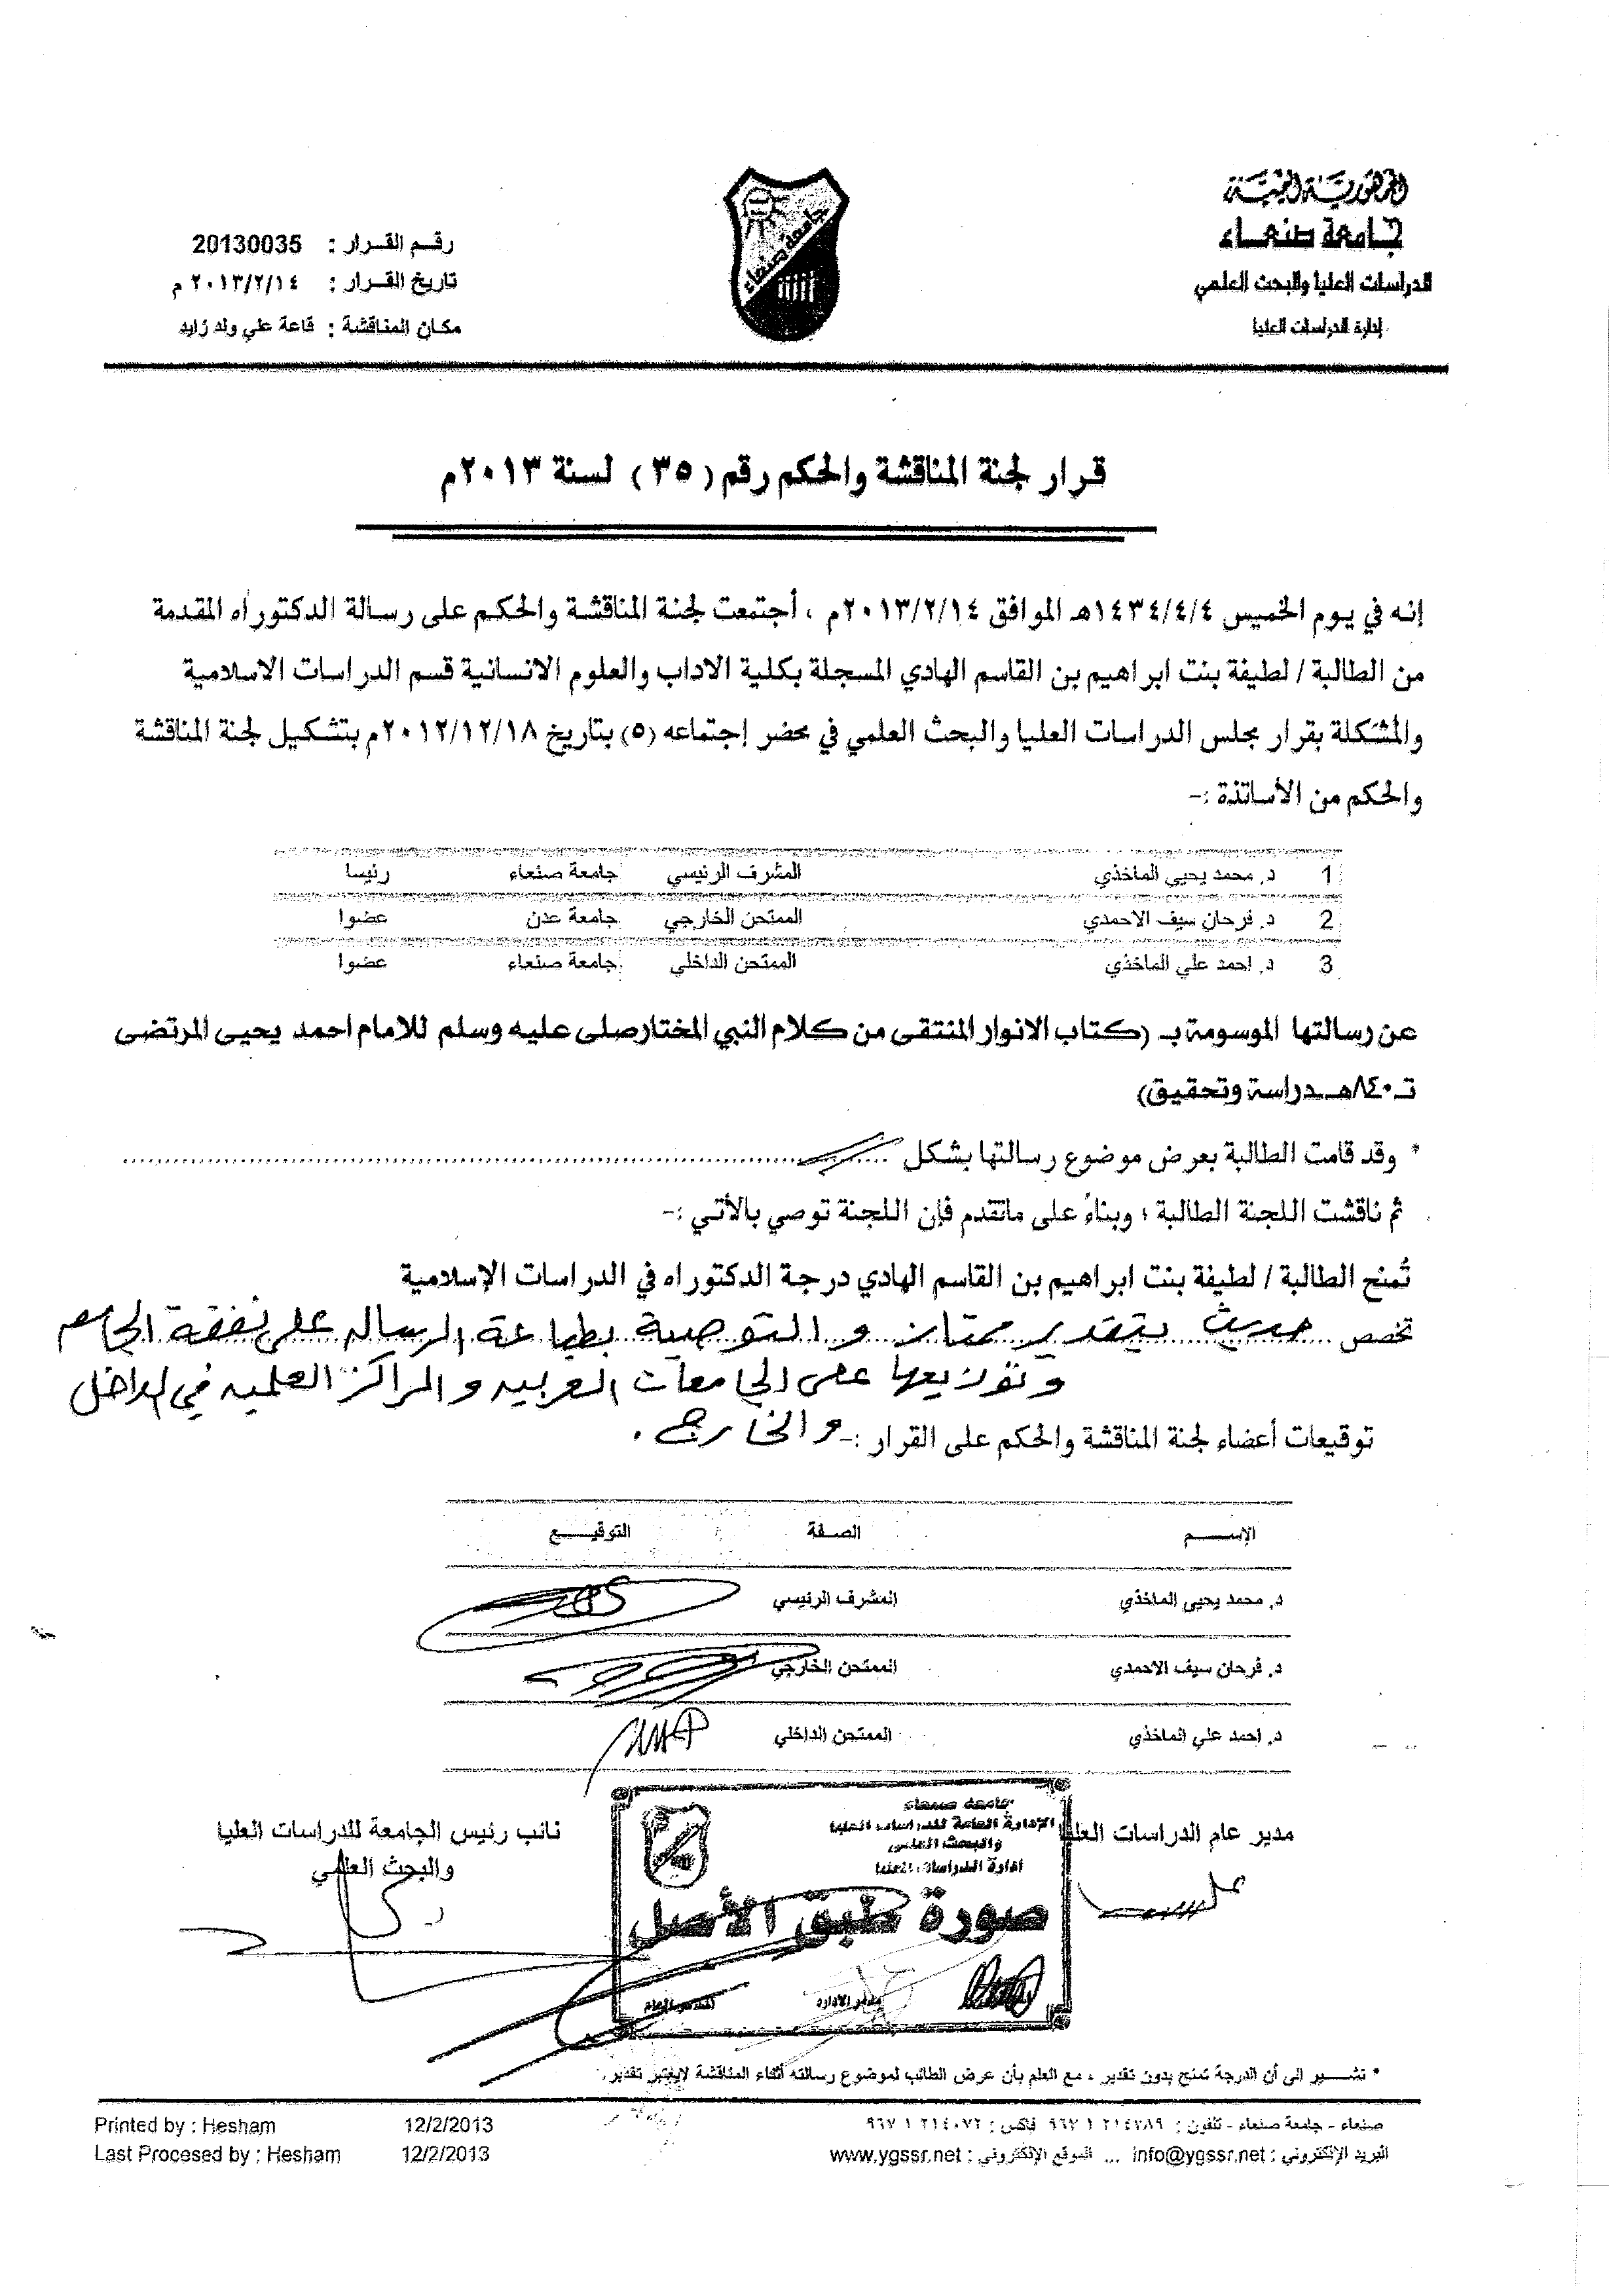 الجمهورية اليمنية
جامعة صنعاء
الدراسات العليا والبحث العلمي
إدارة الدراسات العليا
جامعة صنعاء
رقم القرار : 20130035
تاريخ القرار : ٢٠١٣/٢/١٤ م
مكان المناقشة : قاعة علي ولد زايد
قرار لجنة المناقشة والحكم رقم (٣٥) لسنة ٢٠١٣م
إنه في يوم الخميس ١٤٣٤/٤/٤هـ الموافق ٢٠١٣/٢/١٤م ، أجتمعت لجنة المناقشة والحكم على رسالة الدكتوراه المقدمة
من الطالبة / لطيفة بنت ابراهيم بن القاسم الهادي المسجلة بكلية الاداب والعلوم الانسانية قسم الدراسات الاسلامية
والمشكلة بقرار مجلس الدراسات العليا والبحث العلمي في محضر إجتماعه (٥) بتاريخ ٢٠١٢/١٢/١٨م بتشكيل لجنة المناقشة
والحكم من الأساتذة :-
1 د. محمد يحيى الماخذي المشرف الرئيسي جامعة صنعاء رئيسا
2 د. فرحان سيف الاحمدي الممتحن الخارجي جامعة عدن عضوا
3 د. احمد علي الماخذي الممتحن الداخلي جامعة صنعاء عضوا
عن رسالتها الموسومة بـ (كتاب الانوار المنتقى من كلام النبي المختار صلى عليه وسلم للامام احمد يحيى المرتضى
تـ٨٤٠هـ دراسة وتحقيق)
* وقد قامت الطالبة بعرض موضوع رسالتها بشكل
ثم ناقشت اللجنة الطالبة ؛ وبناءً على ماتقدم فإن اللجنة توصي بالأتي :-
تُمنح الطالبة / لطيفة بنت ابراهيم بن القاسم الهادي درجة الدكتوراه في الدراسات الإسلامية
تخصص حديث بتقدير ممتاز والتوصية بطباعة الرساله على نفقة الجامعه
وتوزيعها على الجامعات العربيه والمراكز العلميه في الداخل
والخارج .
توقيعات أعضاء لجنة المناقشة والحكم على القرار :-
الإســـم الصفة التوقيـــع
د. محمد يحيى الماخذي المشرف الرئيسي
د. فرحان سيف الاحمدي الممتحن الخارجي
د. احمد علي الماخذي الممتحن الداخلي
مدير عام الدراسات العليا
نائب رئيس الجامعة للدراسات العليا
والبحث العلمي
جامعة صنعاء
الإدارة العامة للدراسات العليا
والبحث العلمي
إدارة الدراسات العليا
صورة طبق الأصل
مدير الادارة
* نشـــير الى أن الدرجة تمنح بدون تقدير ، مع العلم بأن عرض الطالب لموضوع رسالته أثناء المناقشة لايعتبر تقدير.
صنعاء - جامعة صنعاء - تلفون : ٢١٤٧٨٩ ١ ٩٦٧ فاكس : ٢١٤٠٧٢ ١ ٩٦٧
البريد الإلكتروني : info@ygssr.net ... الموقع الإلكتروني : www.ygssr.net
Printed by : Hesham 12/2/2013
Last Procesed by : Hesham 12/2/2013